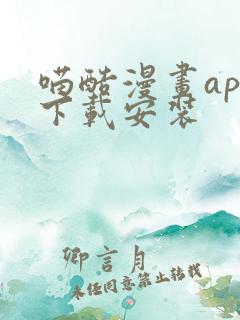 喵酷漫畫ap
下載安裝
卿言月
未经同意禁止转载